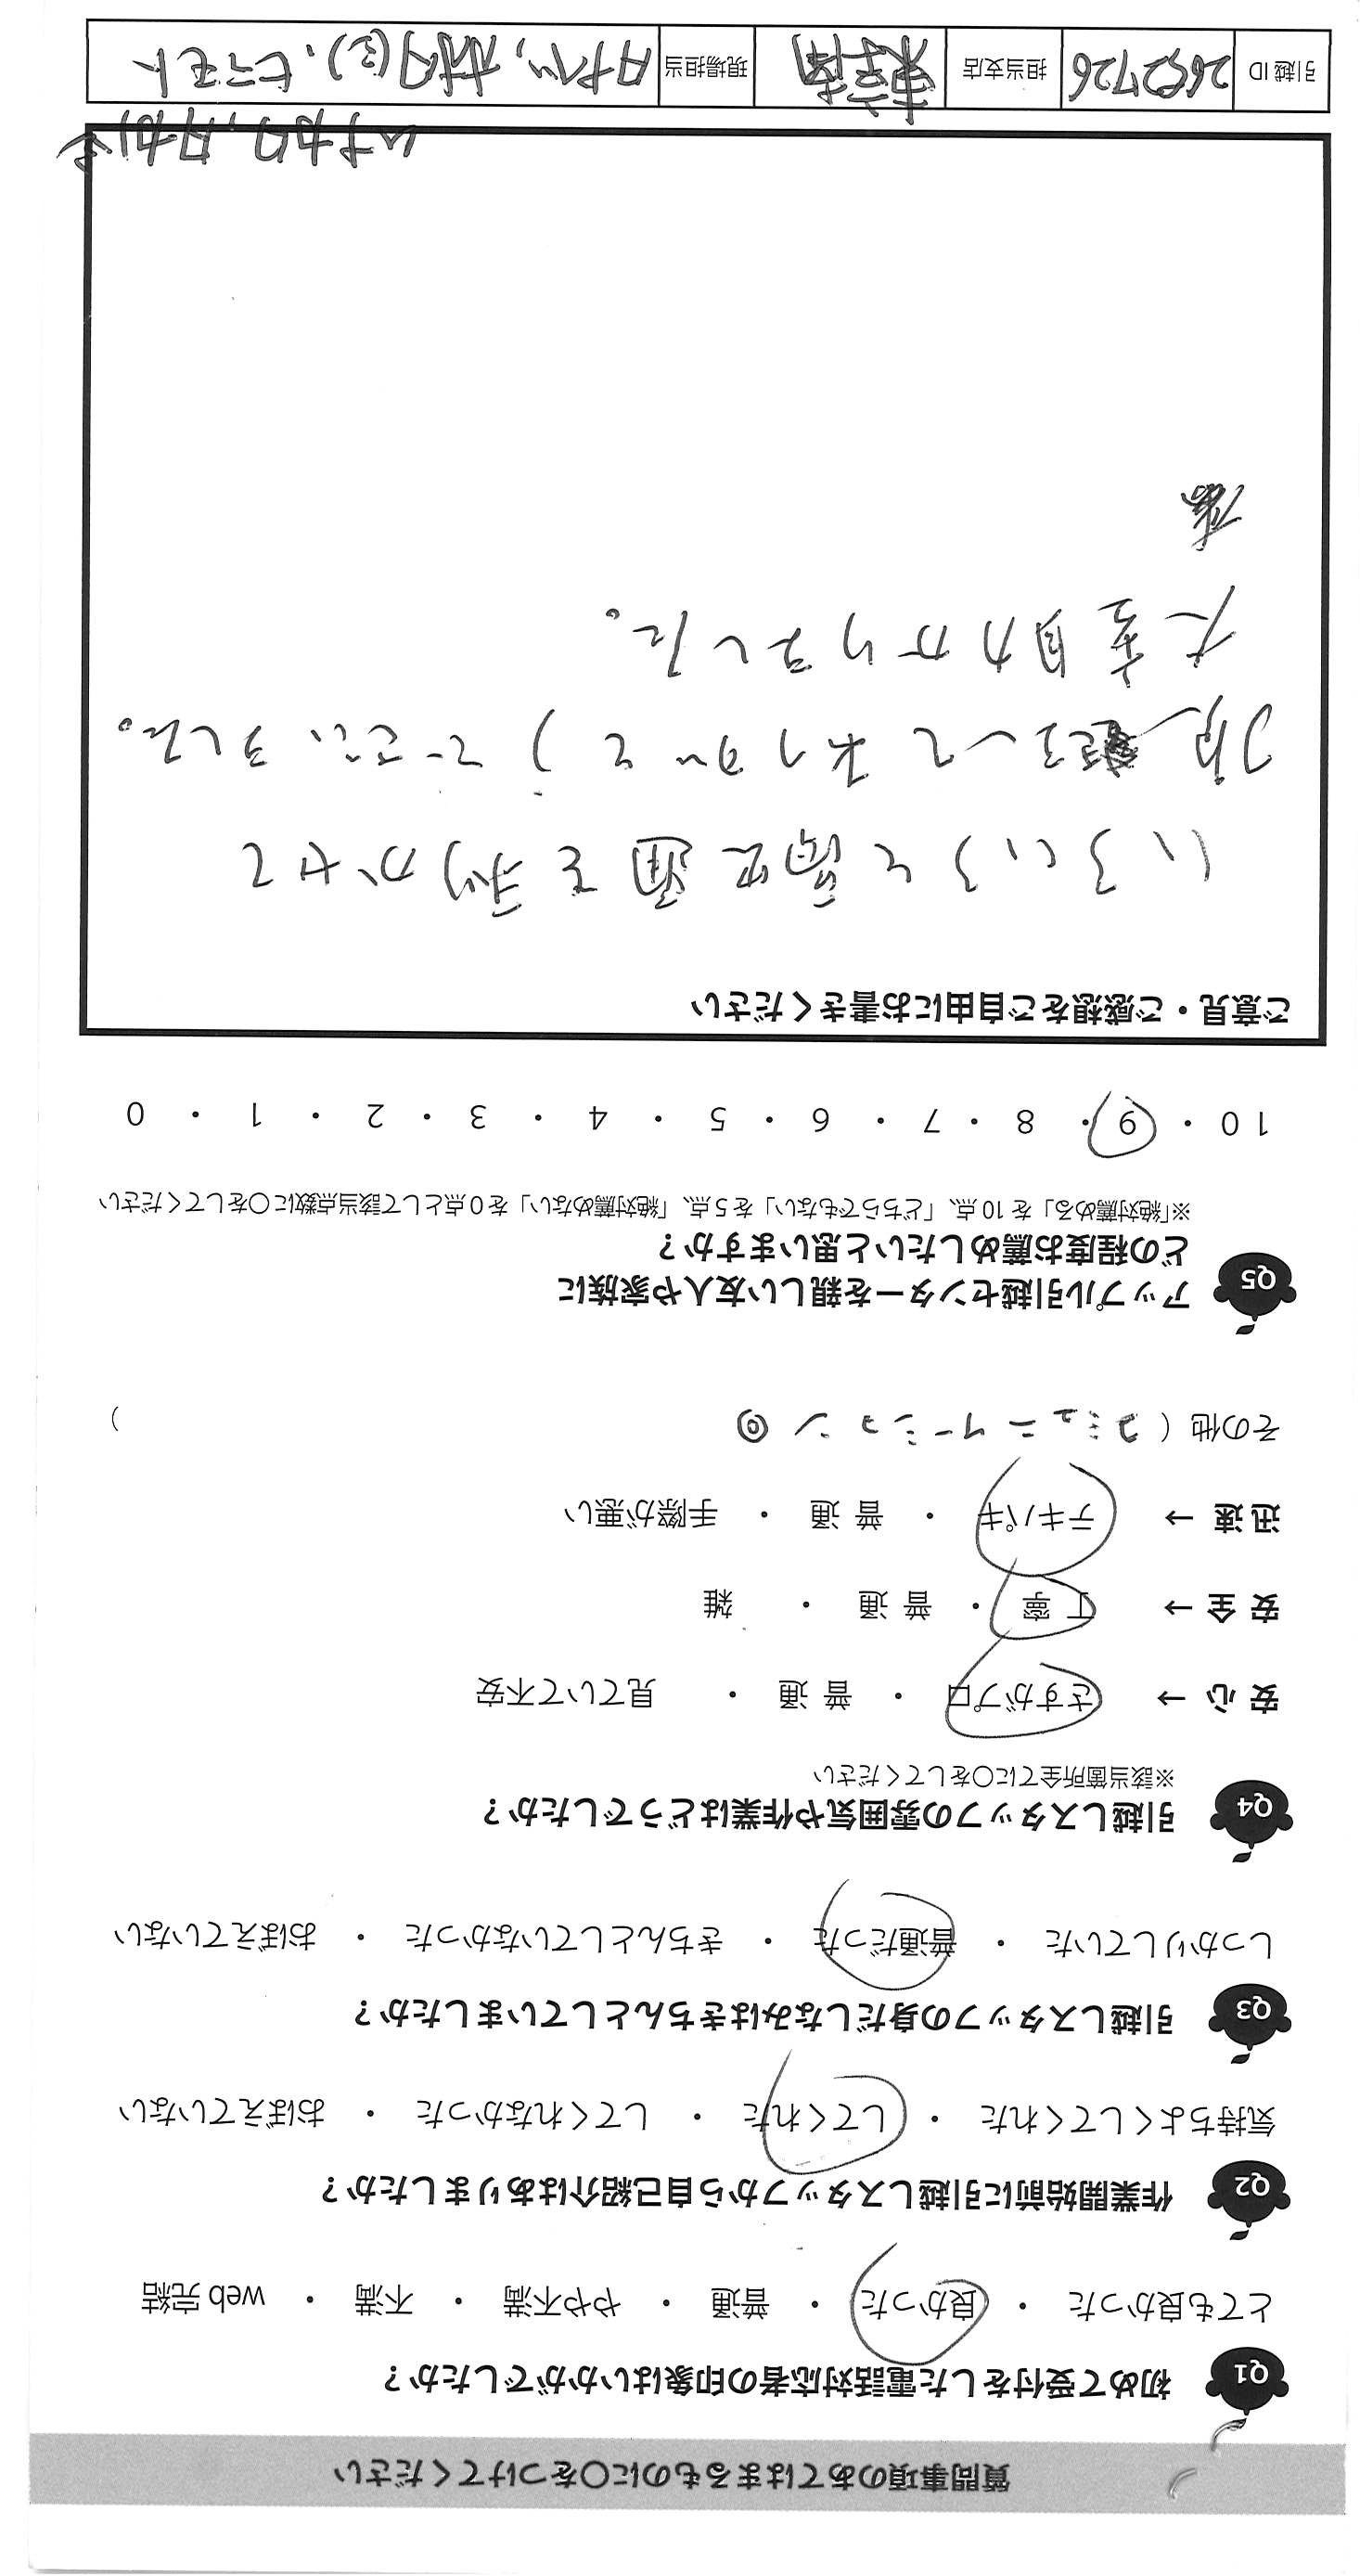 質問事項のあてはまるものに〇をつけてください
Q1 初めて受付をした電話対応者の印象はいかがでしたか？
とても良かった ・ 良かった ・ 普通 ・ やや不満 ・ 不満 ・ web 完結
Q2 作業開始前に引越しスタッフから自己紹介はありましたか？
気持ちよくしてくれた ・ してくれた ・ してくれなかった ・ おぼえていない
Q3 引越しスタッフの身だしなみはきちんとしていましたか？
しっかりしていた ・ 普通だった ・ きちんとしていなかった ・ おぼえていない
Q4 引越しスタッフの雰囲気や作業はどうでしたか？
※該当箇所全てに〇をしてください
安心 → さすがプロ ・ 普通 ・ 見ていて不安
安全 → 丁寧 ・ 普通 ・ 雑
迅速 → テキパキ ・ 普通 ・ 手際が悪い
その他（コミュニケーション ◎ ）
Q5 アップル引越センターを親しい友人や家族に
どの程度お薦めしたいと思いますか？
※「絶対薦める」を 10 点、「どちらでもない」を 5 点、「絶対薦めない」を 0 点として該当点数に〇をしてください
10 ・ 9 ・ 8 ・ 7 ・ 6 ・ 5 ・ 4 ・ 3 ・ 2 ・ 1 ・ 0
ご意見・ご感想をご自由にお書きください
いろいろと融通を利かせて
頂きましてありがとうございました。
大変助かりました。
引越 ID 2652726 担当支店 東京南 現場担当